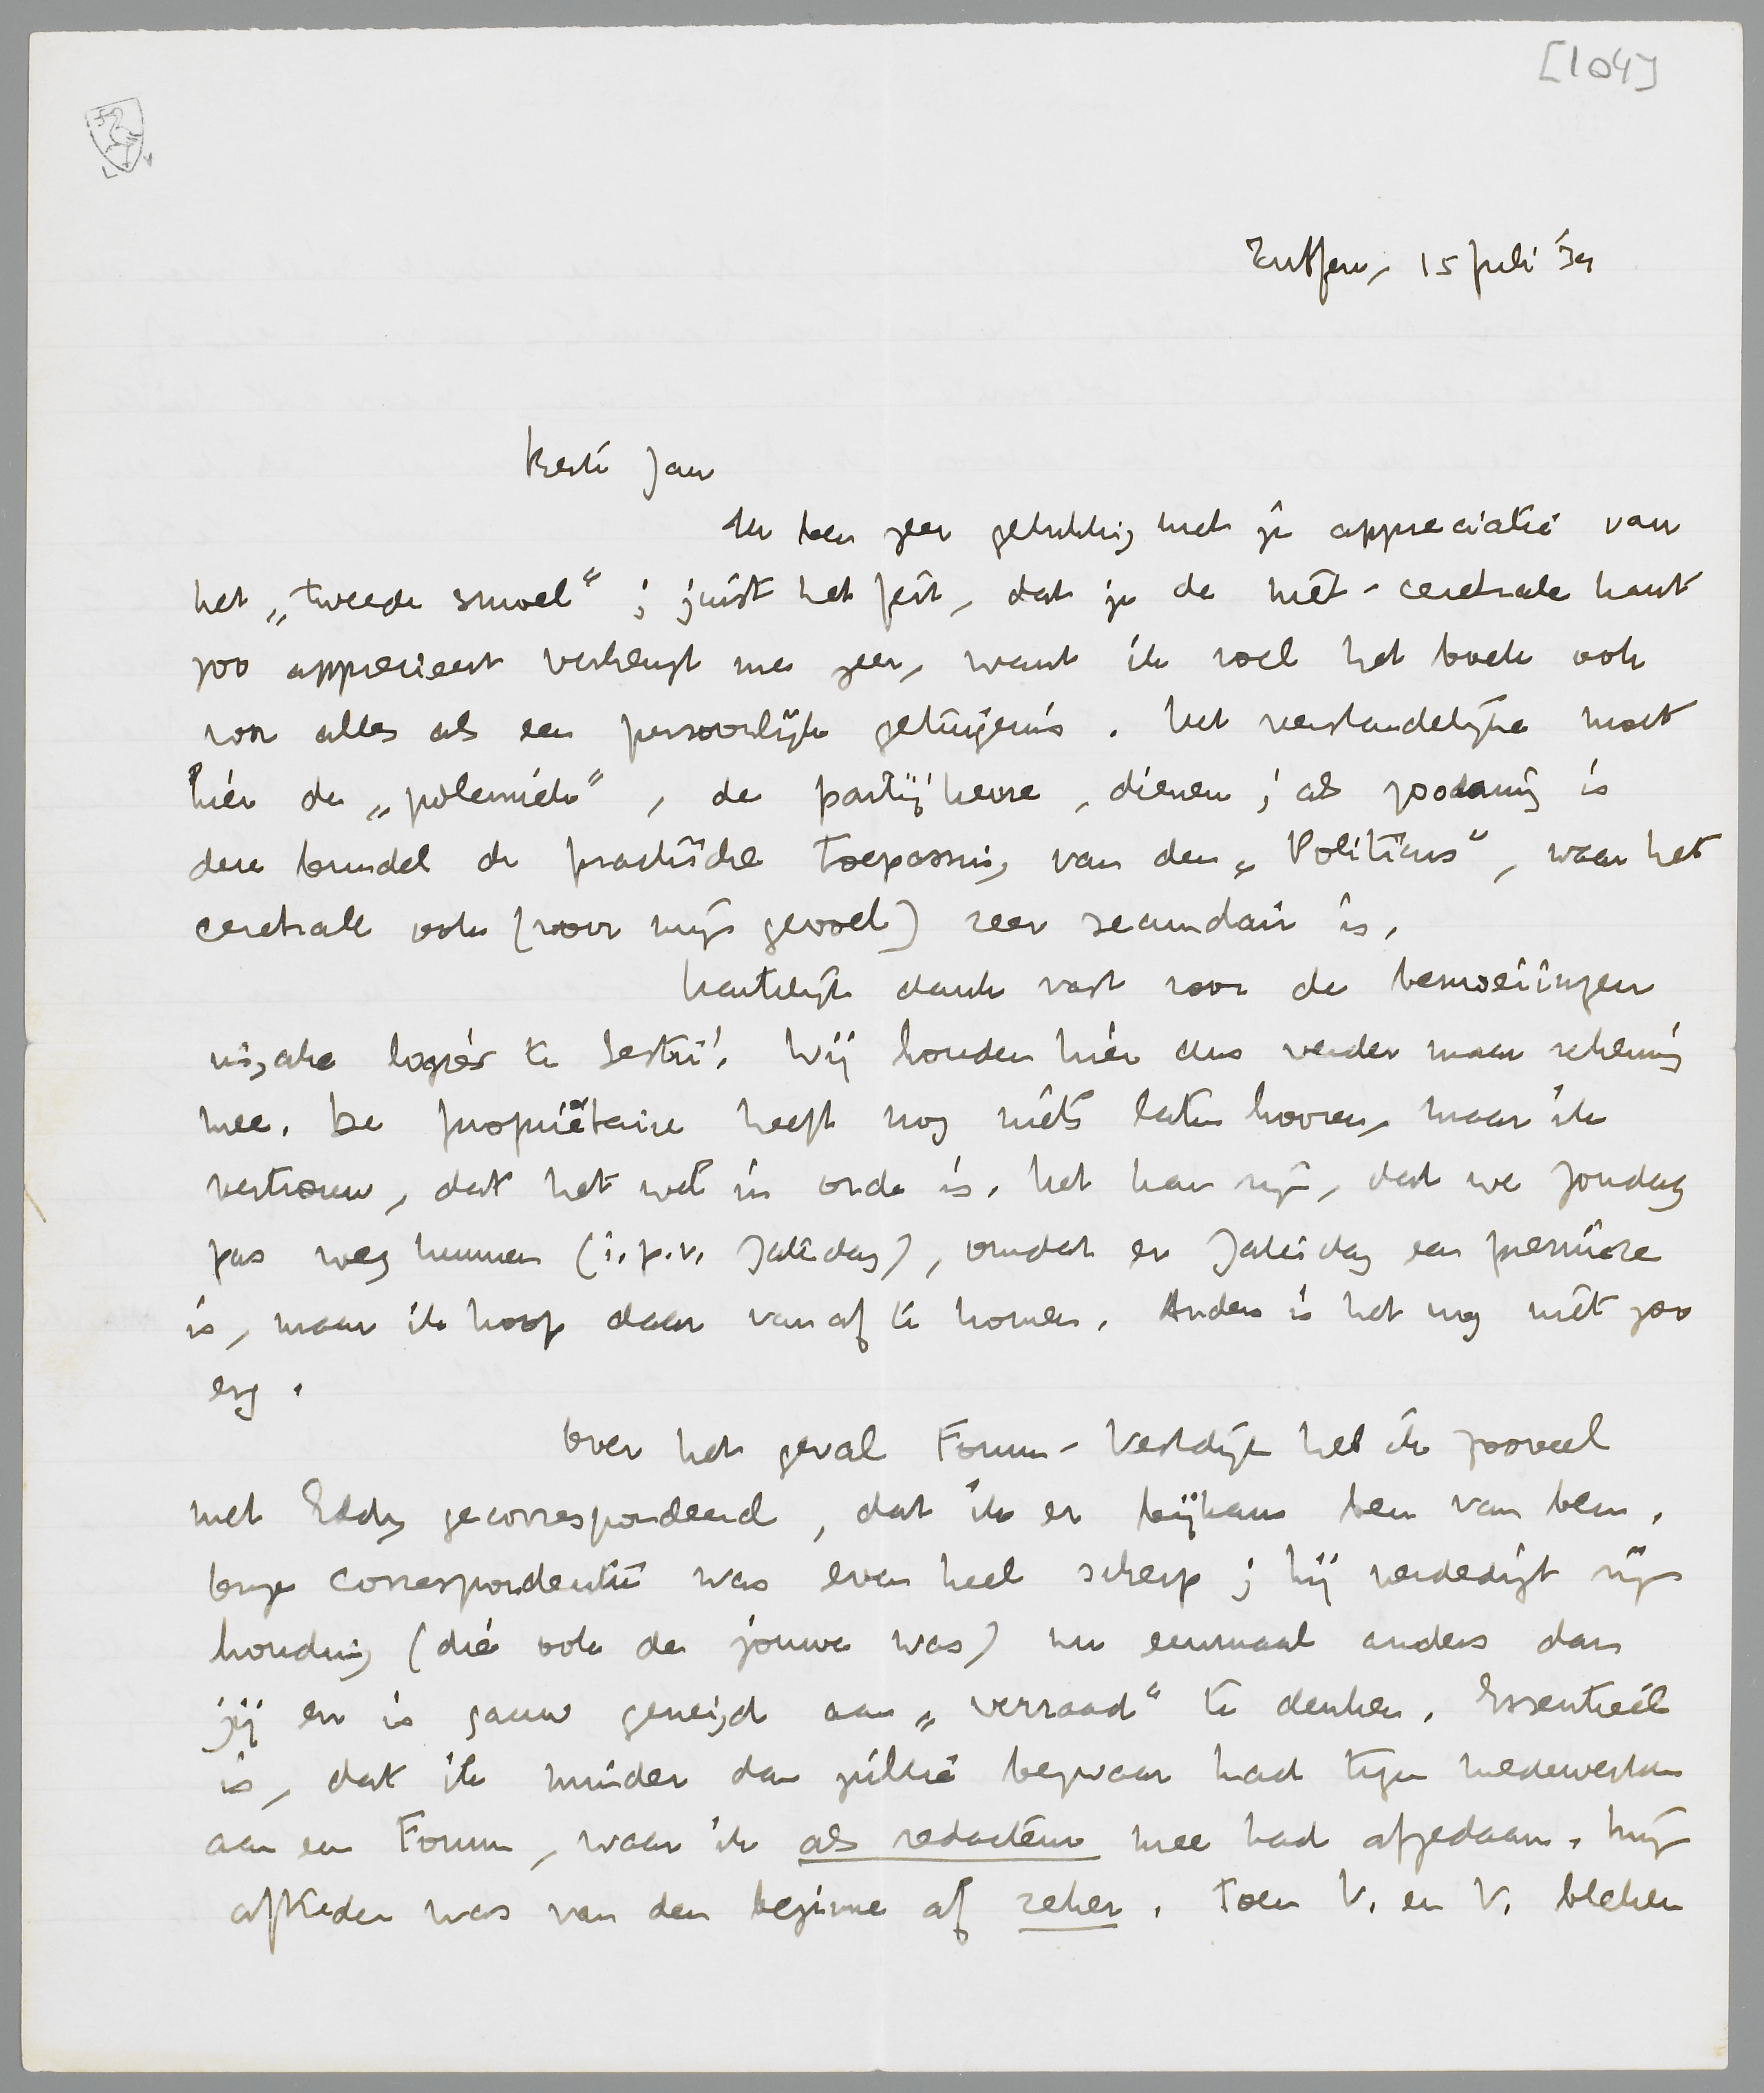 [104]
Zutfen, 15 Juli '34
Beste Jan
Ik ben zeer gelukkig met je appreciatie van
het „tweede smoel”; juist het feit, dat je de niet-cerebrale kant
zoo apprecieert verheugt me zeer, want ik voel het boek ook
voor alles als een persoonlijke getuigenis. Het verstandelijke moet
hier de „polemiek”, de partijkeuze, dienen; als zoodanig is
deze bundel de practische toepassing van den „Politicus”, waar het
cerebrale ook (voor mijn gevoel) zeer secundair is.
Hartelijk dank vast voor de bemoeiingen
inzake logies te Sestri! Wij houden hier dus verder maar rekening
mee. De propriétaire heeft nog niets laten hooren, maar ik
vertrouw, dat het wel in orde is. Het kan zijn, dat we Zondag
pas weg kunnen (i.p.v. Zaterdag), omdat er Zaterdag een première
is, maar ik hoop daar van af te komen. Anders is het nog niet zoo
erg.
Over het geval Forum-Vestdijk heb ik zooveel
met Eddy gecorrespondeerd, dat ik er bijkans beu van ben.
Onze correspondentie was even heel scherp; hij verdedigt zijn
houding (die ook de jouwe was) nu eenmaal anders dan
jij en is gauw geneigd aan „verraad” te denken. Essentieel
is, dat ik minder dan jullie bezwaar had tegen medewerken
aan een Forum, waar ik als redacteur mee had afgedaan. Mijn
aftreden was van den beginne af zeker. Toen V. en V. bleken